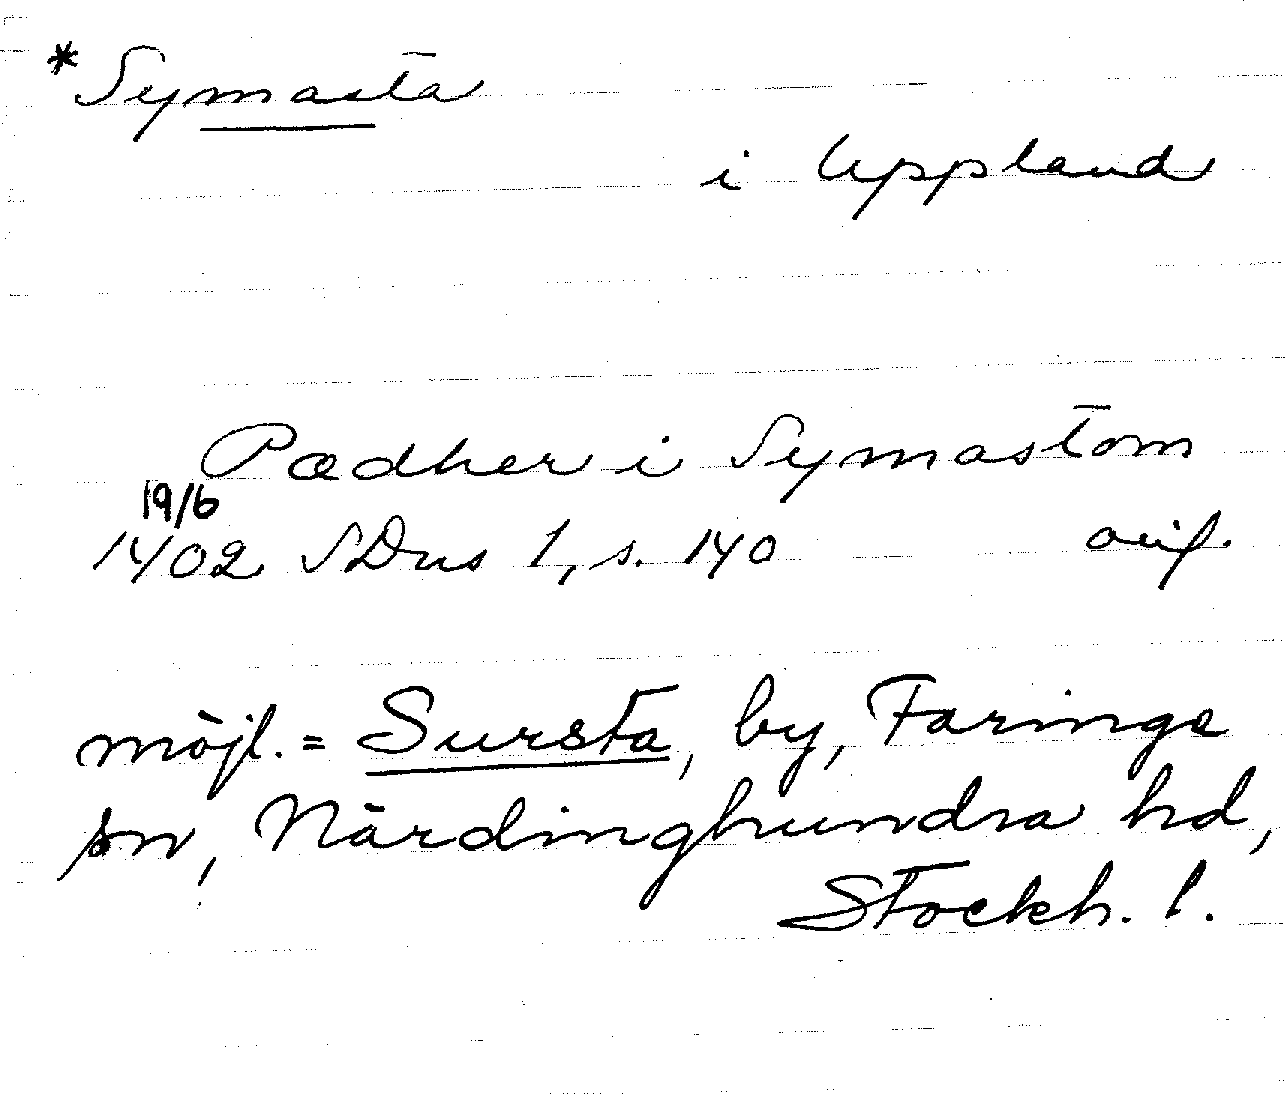 *Symasta
i Uppland
Pædher i Symastom
19/6
1402 SDns 1, s. 140 avs.
möjl. = Sursta, by, Faringe
sn, Närdinghundra hd,
Stockh. l.